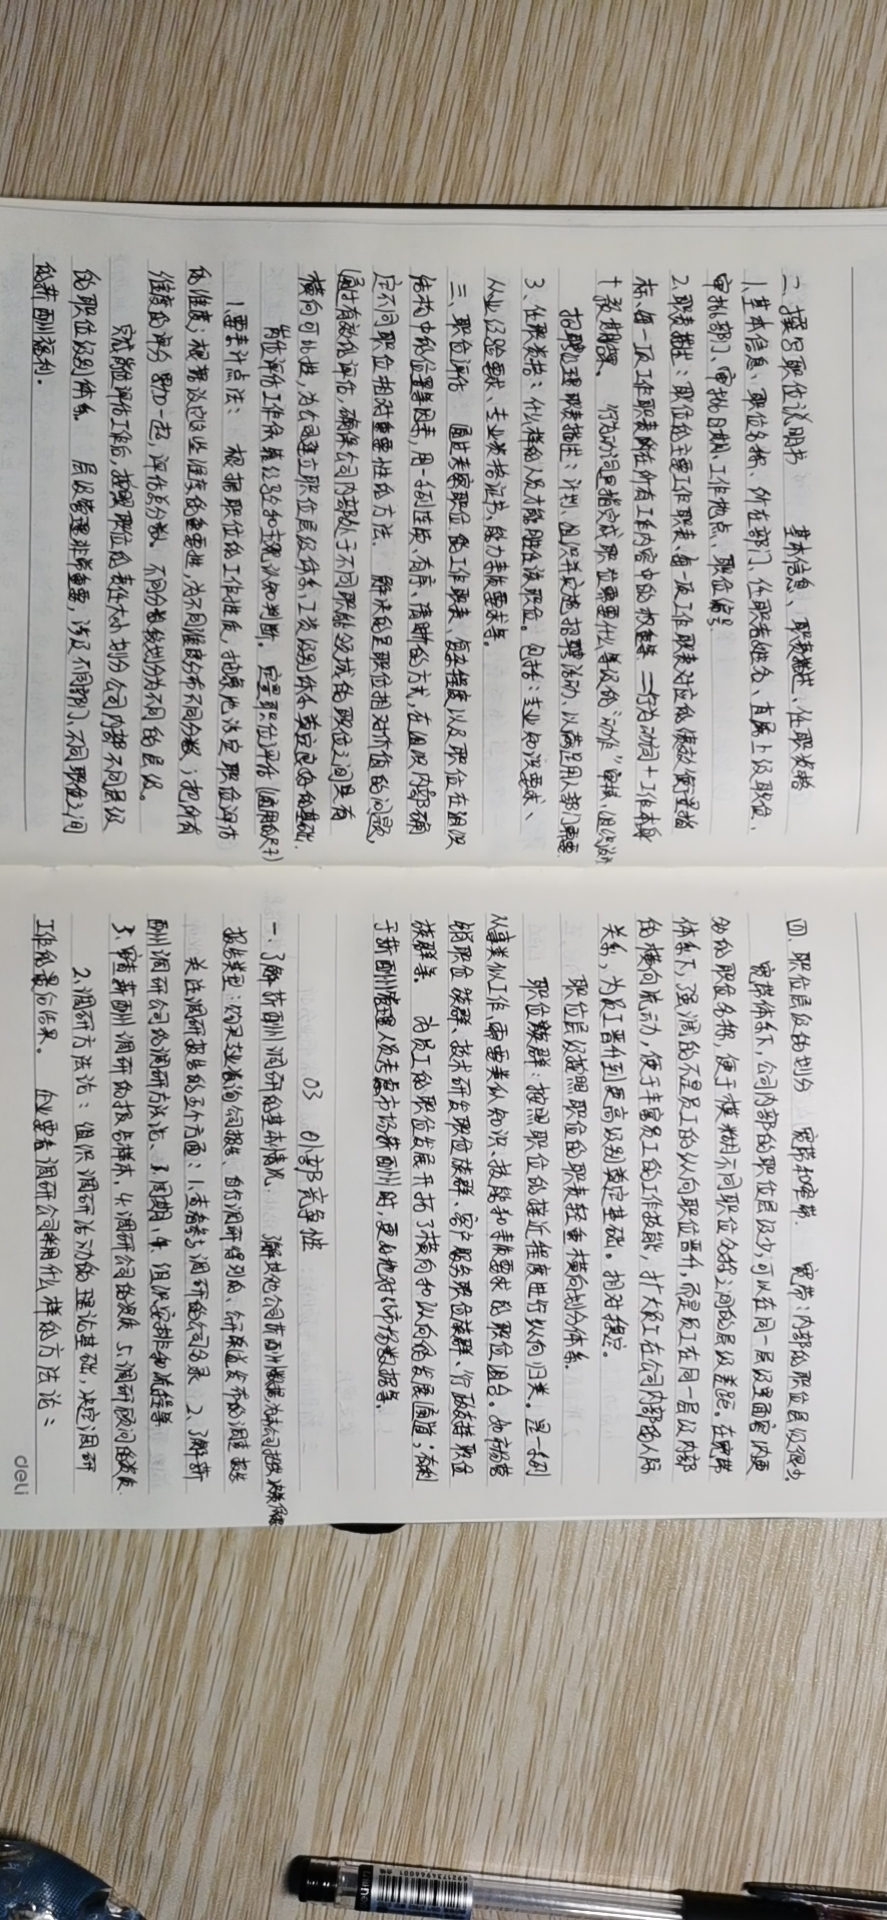 二、撰写职位说明书 基本信息、职责描述、任职资格
1.基本信息、职位名称、所在部门、任职者姓名、直属上级职位、
审批部门、审批日期、工作地点、职位编号
2.职责描述：职位的主要工作职责、每一项工作职责对应的绩效衡量指
标、每一项工作职责所在所有工作内容中的权重等 行为动词+工作本身
+预期结果。 行为动词是指完成职位需要什么等级的"动作"审核、组织
招聘经理职责描述：计划、组织并实施招聘活动、以满足用人部门需要
3、任职资格：什么样的人员才能胜任该职位。包括：专业知识要求、
从业经验要求、专业资格证书、能力素质要求等。
三、职位评估 通过考察职位的工作职责、复杂程度以及职位在组织
结构中的位置等因素，用一种连续、有序、清晰的方式，在组织内部确
定不同职位相对重要性的方法. 解决的是职位相对价值的问题，
通过有效的评估，确保公司内部处于不同职能领域的职位之间具有
横向可比性，为公司建立职位层级体系、工资级别体系奠定良好的基础.
岗位评估工作依靠公正和主观认知判断. 定量职位评估（通用的尺子）
1.要素计点法： 根据职位的工作性质，抽象地法定职位评估
的维度；根据设定这些维度的重要性，为不同维度分布不同分数；把所有
维度的评分累加一起，评估总分数。不同分数级划分为不同的层级。
完成岗位评估工作后，按照职位的责任大小划分公司内部不同层级
的职位级别体系 层级管理非常重要，涉及不同部门、不同职位之间
的薪酬福利.
四、职位层级的划分 宽带和窄带. 宽带：内部的职位层级很少
宽带体系下，公司内部的职位层级少，可以在同一层级里面容纳更
多的职位名称，便于模糊不同职位名称之间的层级差距。在宽带
体系下，强调的不是员工的纵向职位晋升，而是员工在同一层级内部
的横向流动，便于丰富员工的工作技能，扩大员工在公司内部的人际
关系，为员工晋升到更高级别奠定基础。相对稳定。
职位层级按照职位的职责轻重横向划分体系.
职位族群：按照职位的接近程度进行纵向归类。是一系列
从事类似工作、需要类似知识、技能和素质要求的职位组合。如市场营
销职位族群、技术研发职位族群、客户服务职位族群、行政支持职位
族群等. 为员工的职位发展开拓了横向和纵向的发展通道；有利
于薪酬管理人员考虑市场薪酬时，更好地对比市场数据等。
03 外部竞争性
一、了解薪酬调研的基本情况. 了解其他公司薪酬数据为本公司提供决策依据
报告类型：购买专业咨询公司报告、自行调研得到的、公开渠道发布的调查报告
关注调研报告的五个方面：1.查看参与调研的公司名录 2、了解薪
酬调研公司的调研方法论、3.周期 4、组织安排和流程等
3、审查薪酬调研的报告样本，4.调研公司的资质 5、调研顾问的资质
2、调研方法论：组织调研活动的理论基础，决定调研
工作的最后结果。 企业要看调研公司采用什么样的方法论：
deli
6921734966001